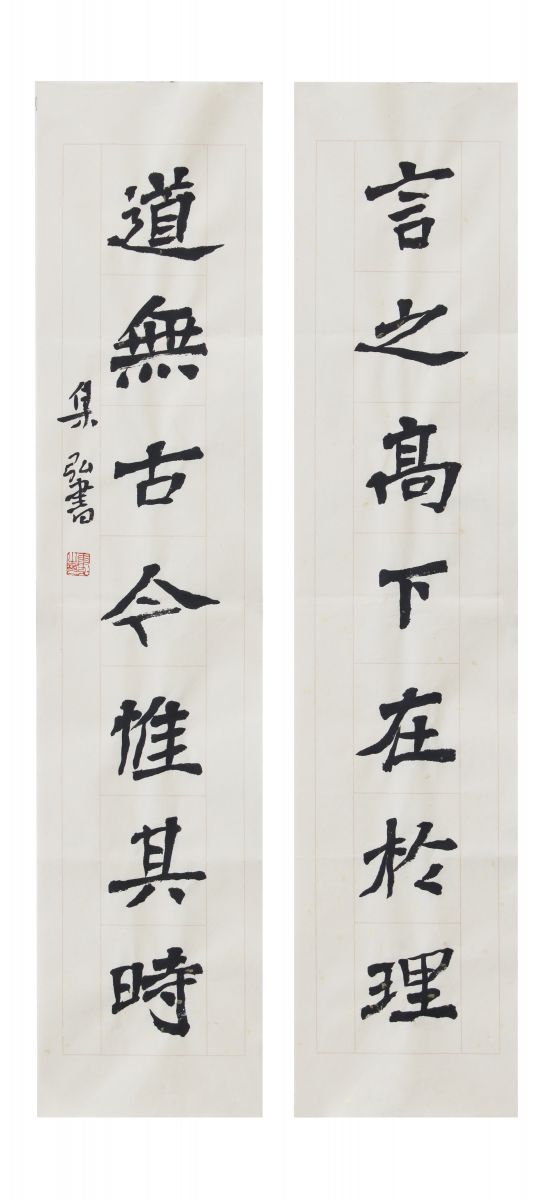 言之高下在於理
道無古今惟其時
集弘書